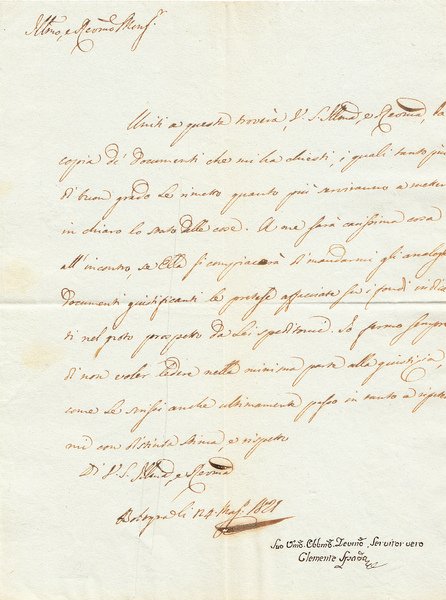 Illmo, e Revmo Monsr.
Uniti a questa troverà V. S. Illma, e Revma, la
copia de' Documenti che mi ha chiesti, i quali tanto più
di buon grado Le rimetto quanto più serviranno a metter
in chiaro lo stato delle cose. A me sarà carissima cosa
all'incontro, se Ella si compiacerà di mandarmi gli analoghi
Documenti giustificanti le pretese affacciate su i fondi
ti nel noto prospetto da Lei speditomi. Io fermo sempre
di non voler ledere nella minima parte alla giustizia,
come Le scrissi anche ultimamente passo in tanto a
mi con distinta stima, e rispetto
Di V. S. Illma, e Revma
Bologna li 24 1821
Suo Umo. Obbmo. Devmo. Servitor vero
Clemente Spada